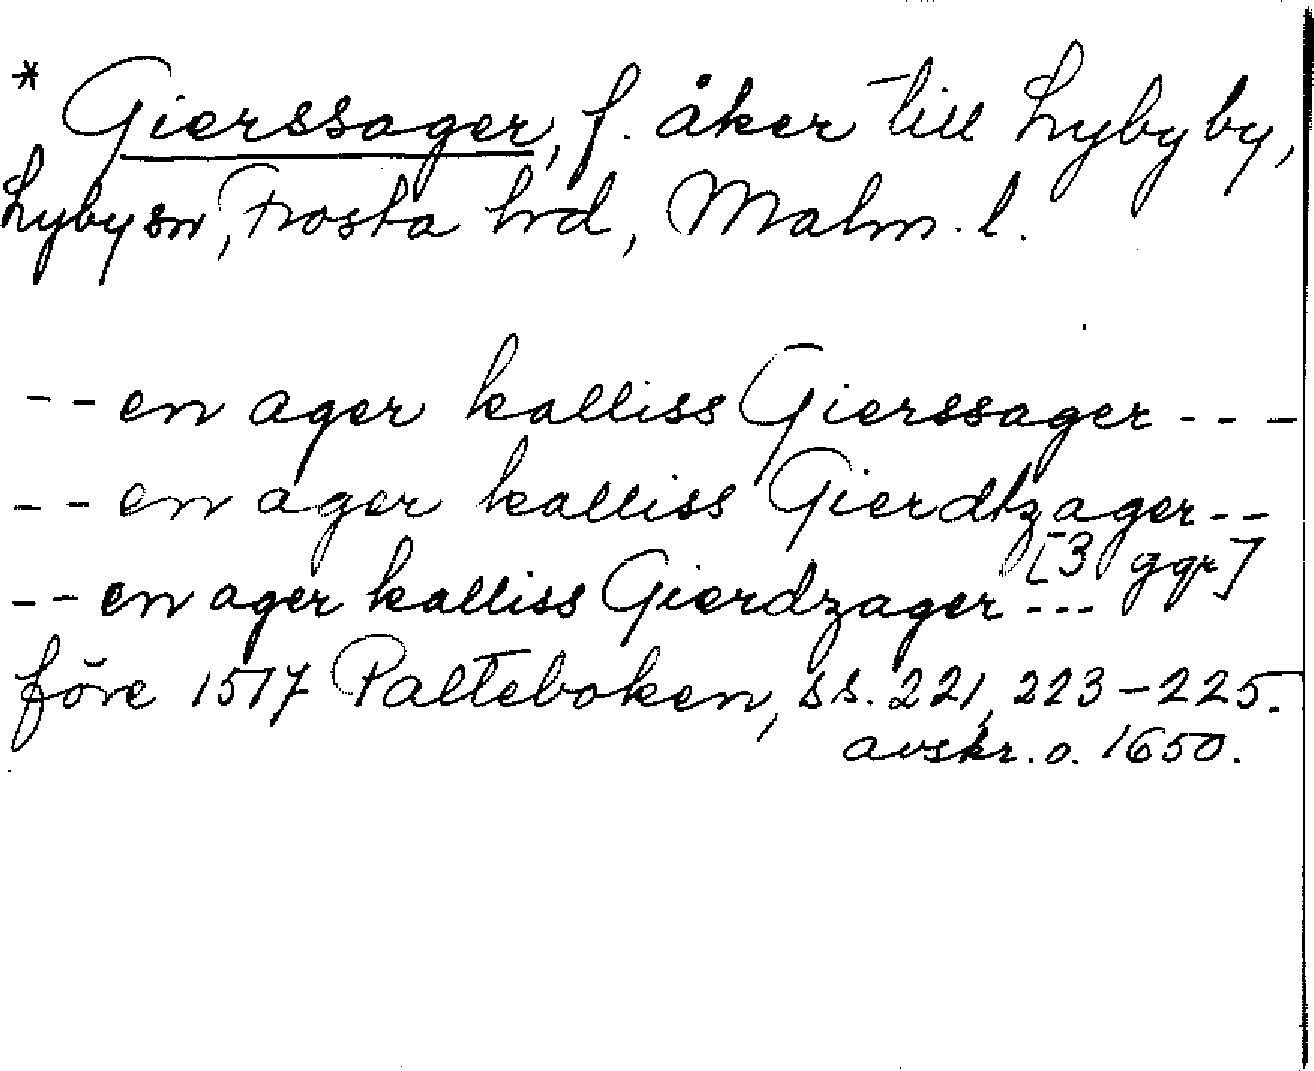 * Gierssager, f. åker till Lyby by,
Lyby sn, Frosta hd, Malm. l.
-- en ager kalliss Gierssager ---
-- en ager kalliss Gierdtzager --
[3 ggr]
-- en ager kalliss Gierdzager ---
före 1517 Palteboken, ss. 221, 223-225.
avskr. o. 1650.